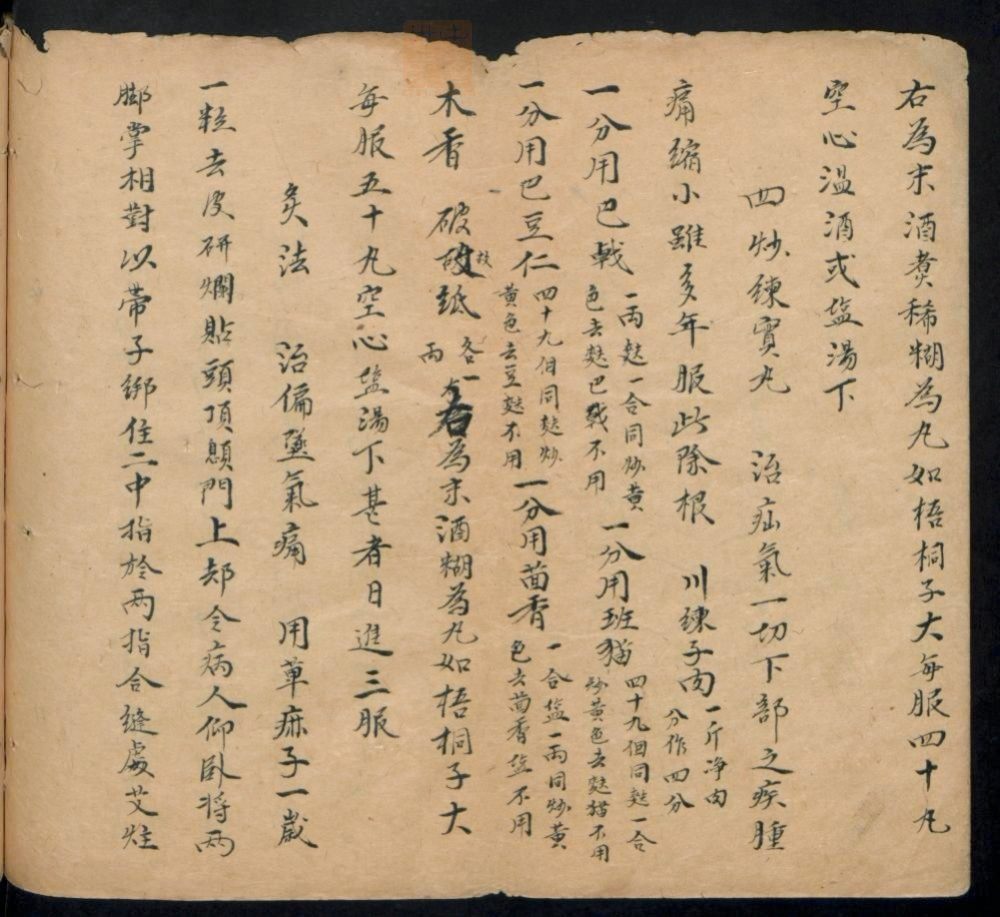 右為末酒煑稀糊為丸如梧桐子大每服四十丸
空心温酒或盐湯下
四炒練實丸 治疝氣一切下部之疾腫
痛縮小雖多年服此除根 川練子肉一斤净肉分作四分
一分用巴戟一両麸一合同炒黄色去麸巴戟不用 一分用班猫四十九個同麸一合炒黄色去麸猫不用
一分用巴豆仁四十九個同麸炒黄色去豆麸不用 一分用茴香一合盐一両同炒黄色去茴香盐不用
木香 破故紙各一両 右為末酒糊為丸如梧桐子大
每服五十丸空心盐湯下甚者日進三服
灸法 治偏墜氣痛 用草麻子一歲
一粒去皮研爛貼頭頂顖門上却令病人仰卧将两
脚掌相對以帶子綁住二中指於两指合縫處艾炷